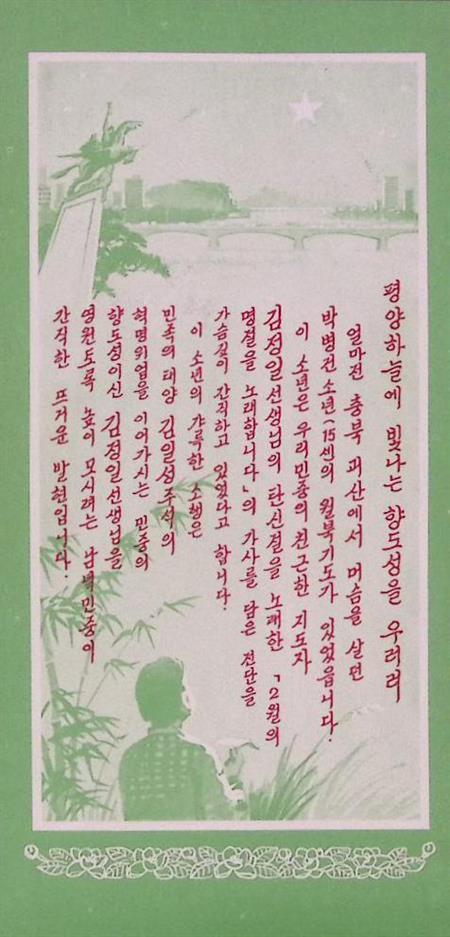 평양하늘에 빛나는 향도성을 우러러
얼마전 충북 괴산에서 머슴을 살던
박병전소년(15센)의 월북기도가 있었읍니다.
이 소년은 우리민중의 친근한 지도자
김정일선생님의 탄신절을 노래한 「2월의
명절을 노래합니다」의 가사를 담은 전단을
가슴깊이 간직하고 있었다고 합니다.
이 소년의 갸륵한 소행은
민족의 태양 김일성주석의
혁명위업을 이어가시는 민중의
향도성이신 김정일선생님을
영원토록 높이 모시려는 남녘민중이
간직한 뜨거운 발현입니다.